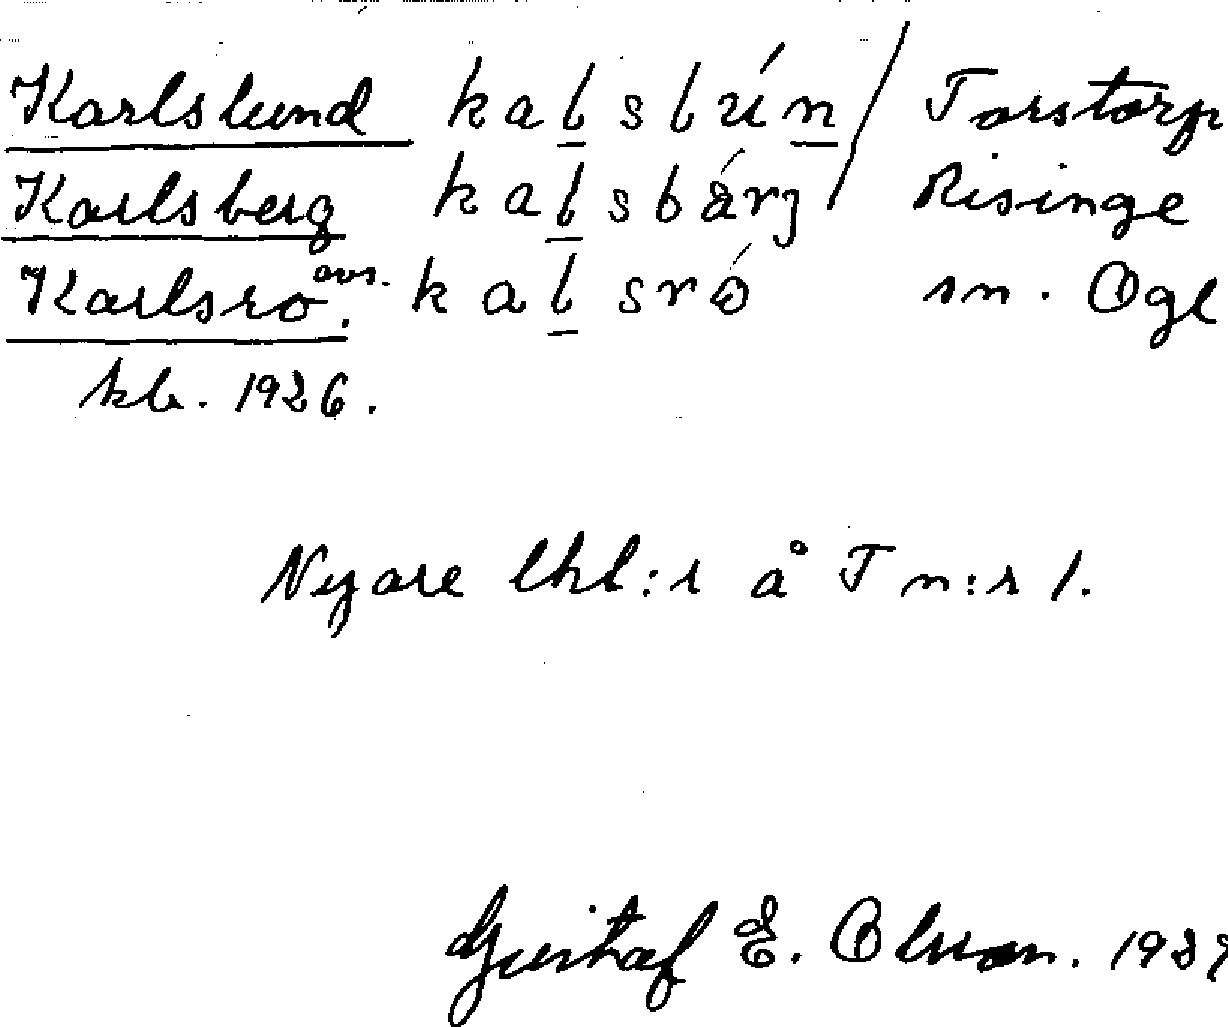 Karlslund kalslún / Torstorp
Karlsberg kalsbárj / Risinge
Karlsro avs. kalsró sn. Ögl
kb. 1926.
Nyare lhl:r å T n:r 1.
Gustaf E. Olsson.